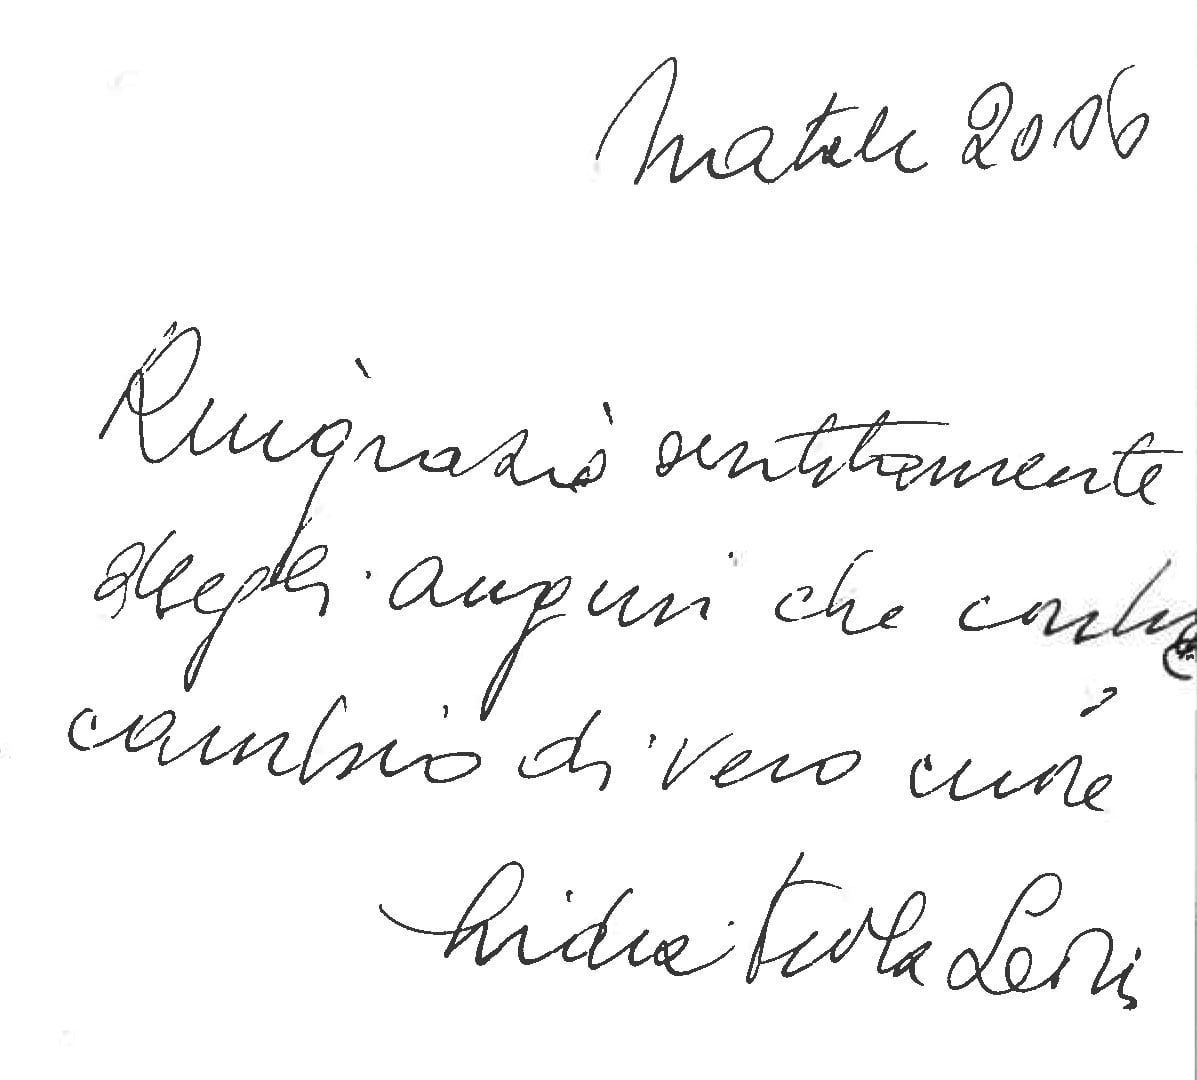 Natale 2006
Ringrazio sentitamente
degli auguri che
cambio di vero cuore
Lidia